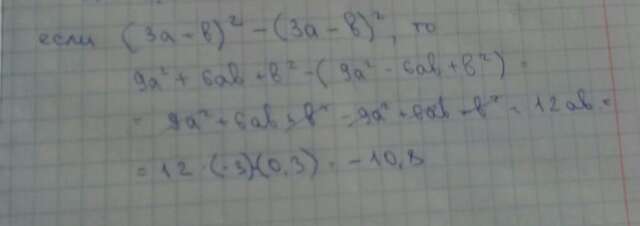 если (3a+b)² - (3a-b)², то
9a² + 6ab + b² - (9a² - 6ab + b²) =
= 9a² + 6ab + b² - 9a² + 6ab - b² = 12ab =
= 12 · (-3)(0,3) = -10,8